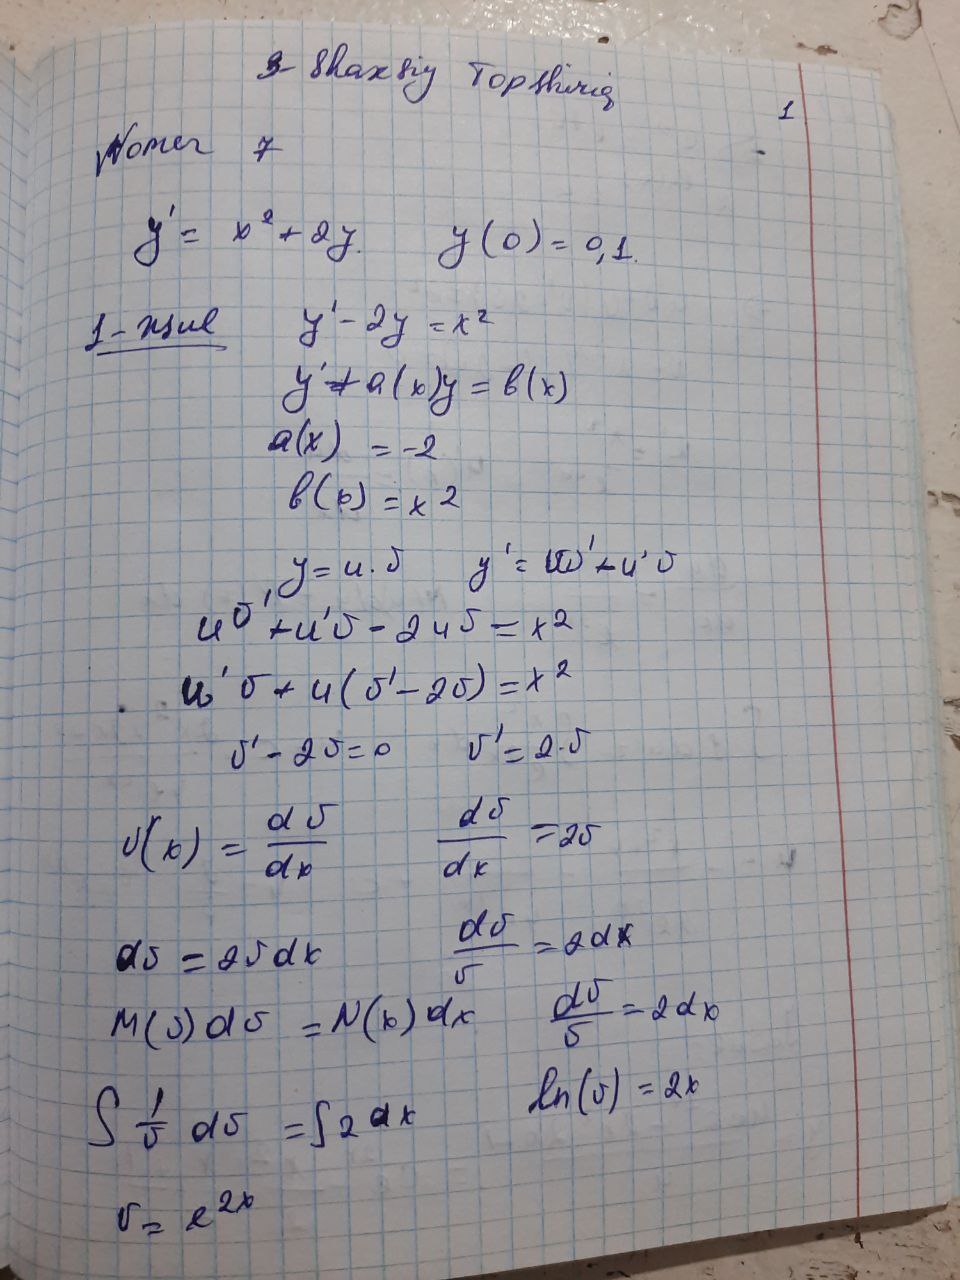 3- Shaxsiy Topshiriq
1
Nomer 7
y' = x² + 2y. y(0) = 0,1.
y' - 2y = x²
y' + a(x)y = b(x)
a(x) = -2
b(x) = x²
y = u·v y' = uv' + u'v
uv' + u'v - 2uv = x²
u'v + u(v' - 2v) = x²
v' - 2v = 0 v' = 2·v
v'(x) = dv/dx dv/dx = 2v
dv = 2v dx dv/v = 2dx
M(v) dv = N(x) dx dv/v = 2dx
∫ 1/v dv = ∫ 2 dx ln(v) = 2x
v = e^{2x}